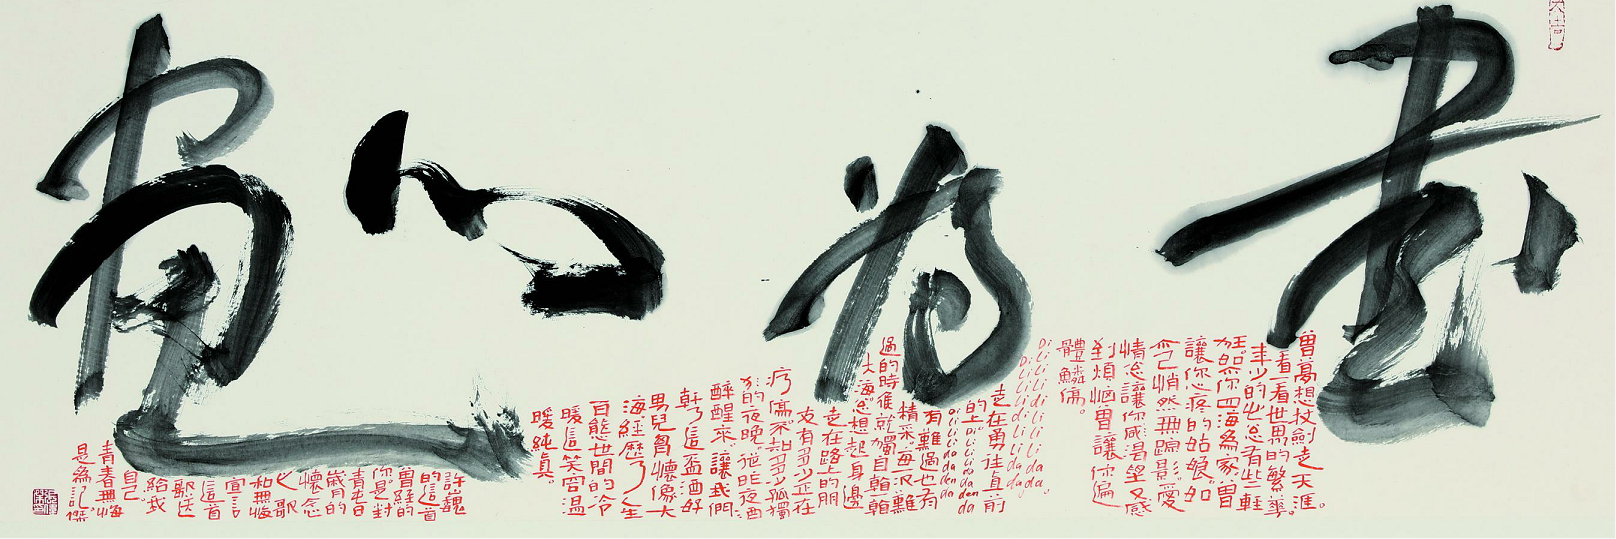 書為心畫
大吉
曾夢想杖劍走天涯。
看一看世界的繁華。
年少的心总有些輕
狂。如今你四海為家。曾
讓你心疼的姑娘。如
今已悄然無踪影。愛
情总讓你感渴望又感
到煩惱曾讓你遍
體鱗傷。
Di li li li Di li li li da。
Di li li li di li li li da da
走在勇往直前
的上Di li li li da den da
Di li li li da da da
有難過也有
精采。每次難
過的時後就獨自看一看
大海总想起身邊
走在路上的朋
友有多少正在
疗傷不知多少孤獨
的夜晚。從昨夜酒
醉醒來。讓我們
乾了這盃酒好
男兒胸懷像大
海經歷了人生
百態世間的冷
暖這笑容溫
暖純真。
許巍
的這首
曾經的
你是對
青春
歲月的
懷念
也歌
和無悔
宣言
這首
歌送
給我
自己
青春無悔
是為記